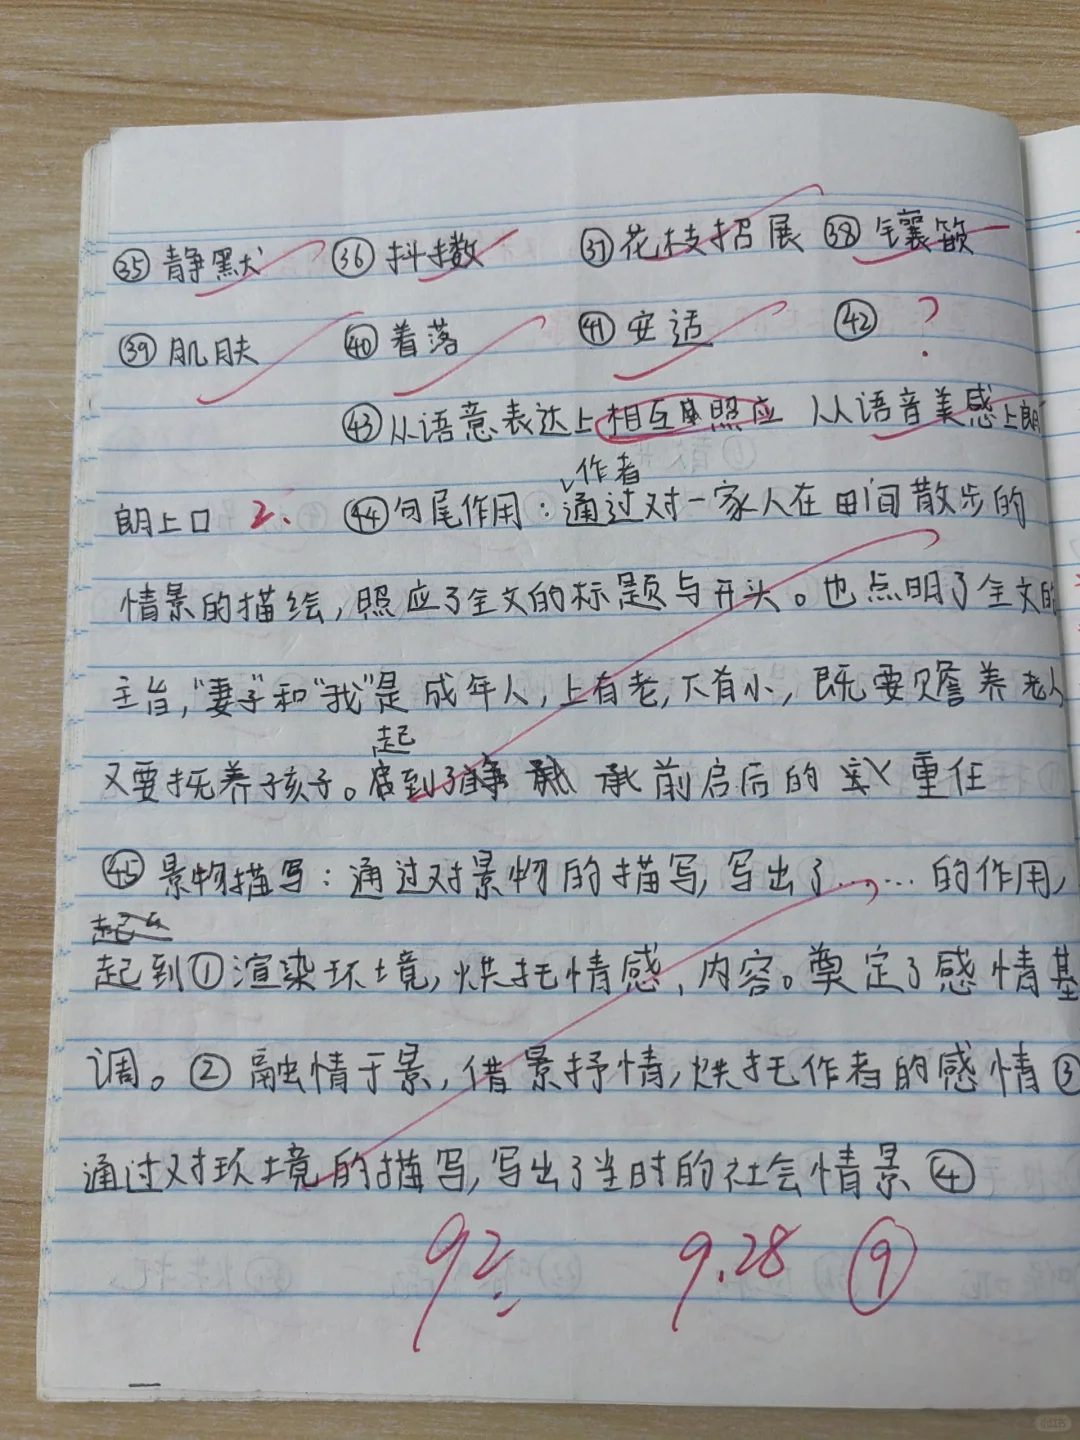 ㉟静默 ㊱抖擞 ㊲花枝招展 ㊳
㊴肌肤 ㊵着落 ㊶安适 ㊷ ?
㊸从语意表达上相互照应 从语音美感上朗
朗上口 2. ㊹句尾作用:作者通过对一家人在田间散步的
情景的描绘,照应了全文的标题与开头。也点明了全文的
主旨,“妻子”和“我”是成年人,上有老,下有小,既要赡养老人
又要抚养孩子。起到了承前启后的重任
㊺景物描写:通过对景物的描写,写出了……的作用,
起到①渲染环境,烘托情感、内容。奠定了感情基
调。②融情于景,借景抒情,烘托作者的感情③
通过对环境的描写,写出了当时的社会情景④
92 9.28 ⑨